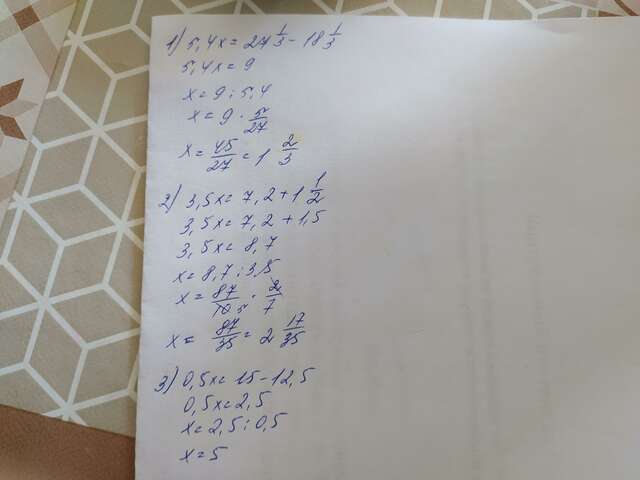 1) 5,4x = 27 1/3 - 18 1/3
5,4x = 9
x = 9 : 5,4
x = 9 · 5/27
x = 45/27 = 1 2/3
2) 3,5x = 7,2 + 1 1/2
3,5x = 7,2 + 1,5
3,5x = 8,7
x = 8,7 : 3,5
x = 87/10 5 · 2/7
x = 87/35 = 2 17/35
3) 0,5x = 15 - 12,5
0,5x = 2,5
x = 2,5 : 0,5
x = 5